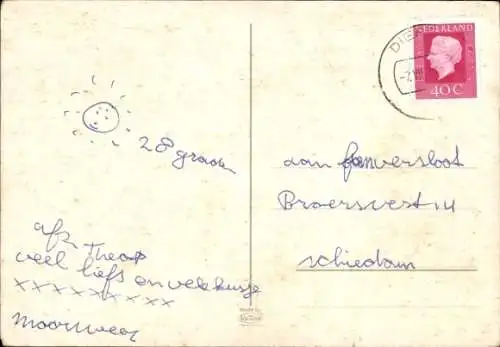 28 graden
afz. Theo
veel liefs en veel kusje
xxxxxxxxx
mooi weer
NEDERLAND
40 C
DIE
aan fam versloot
Broersvest 14
schiedam